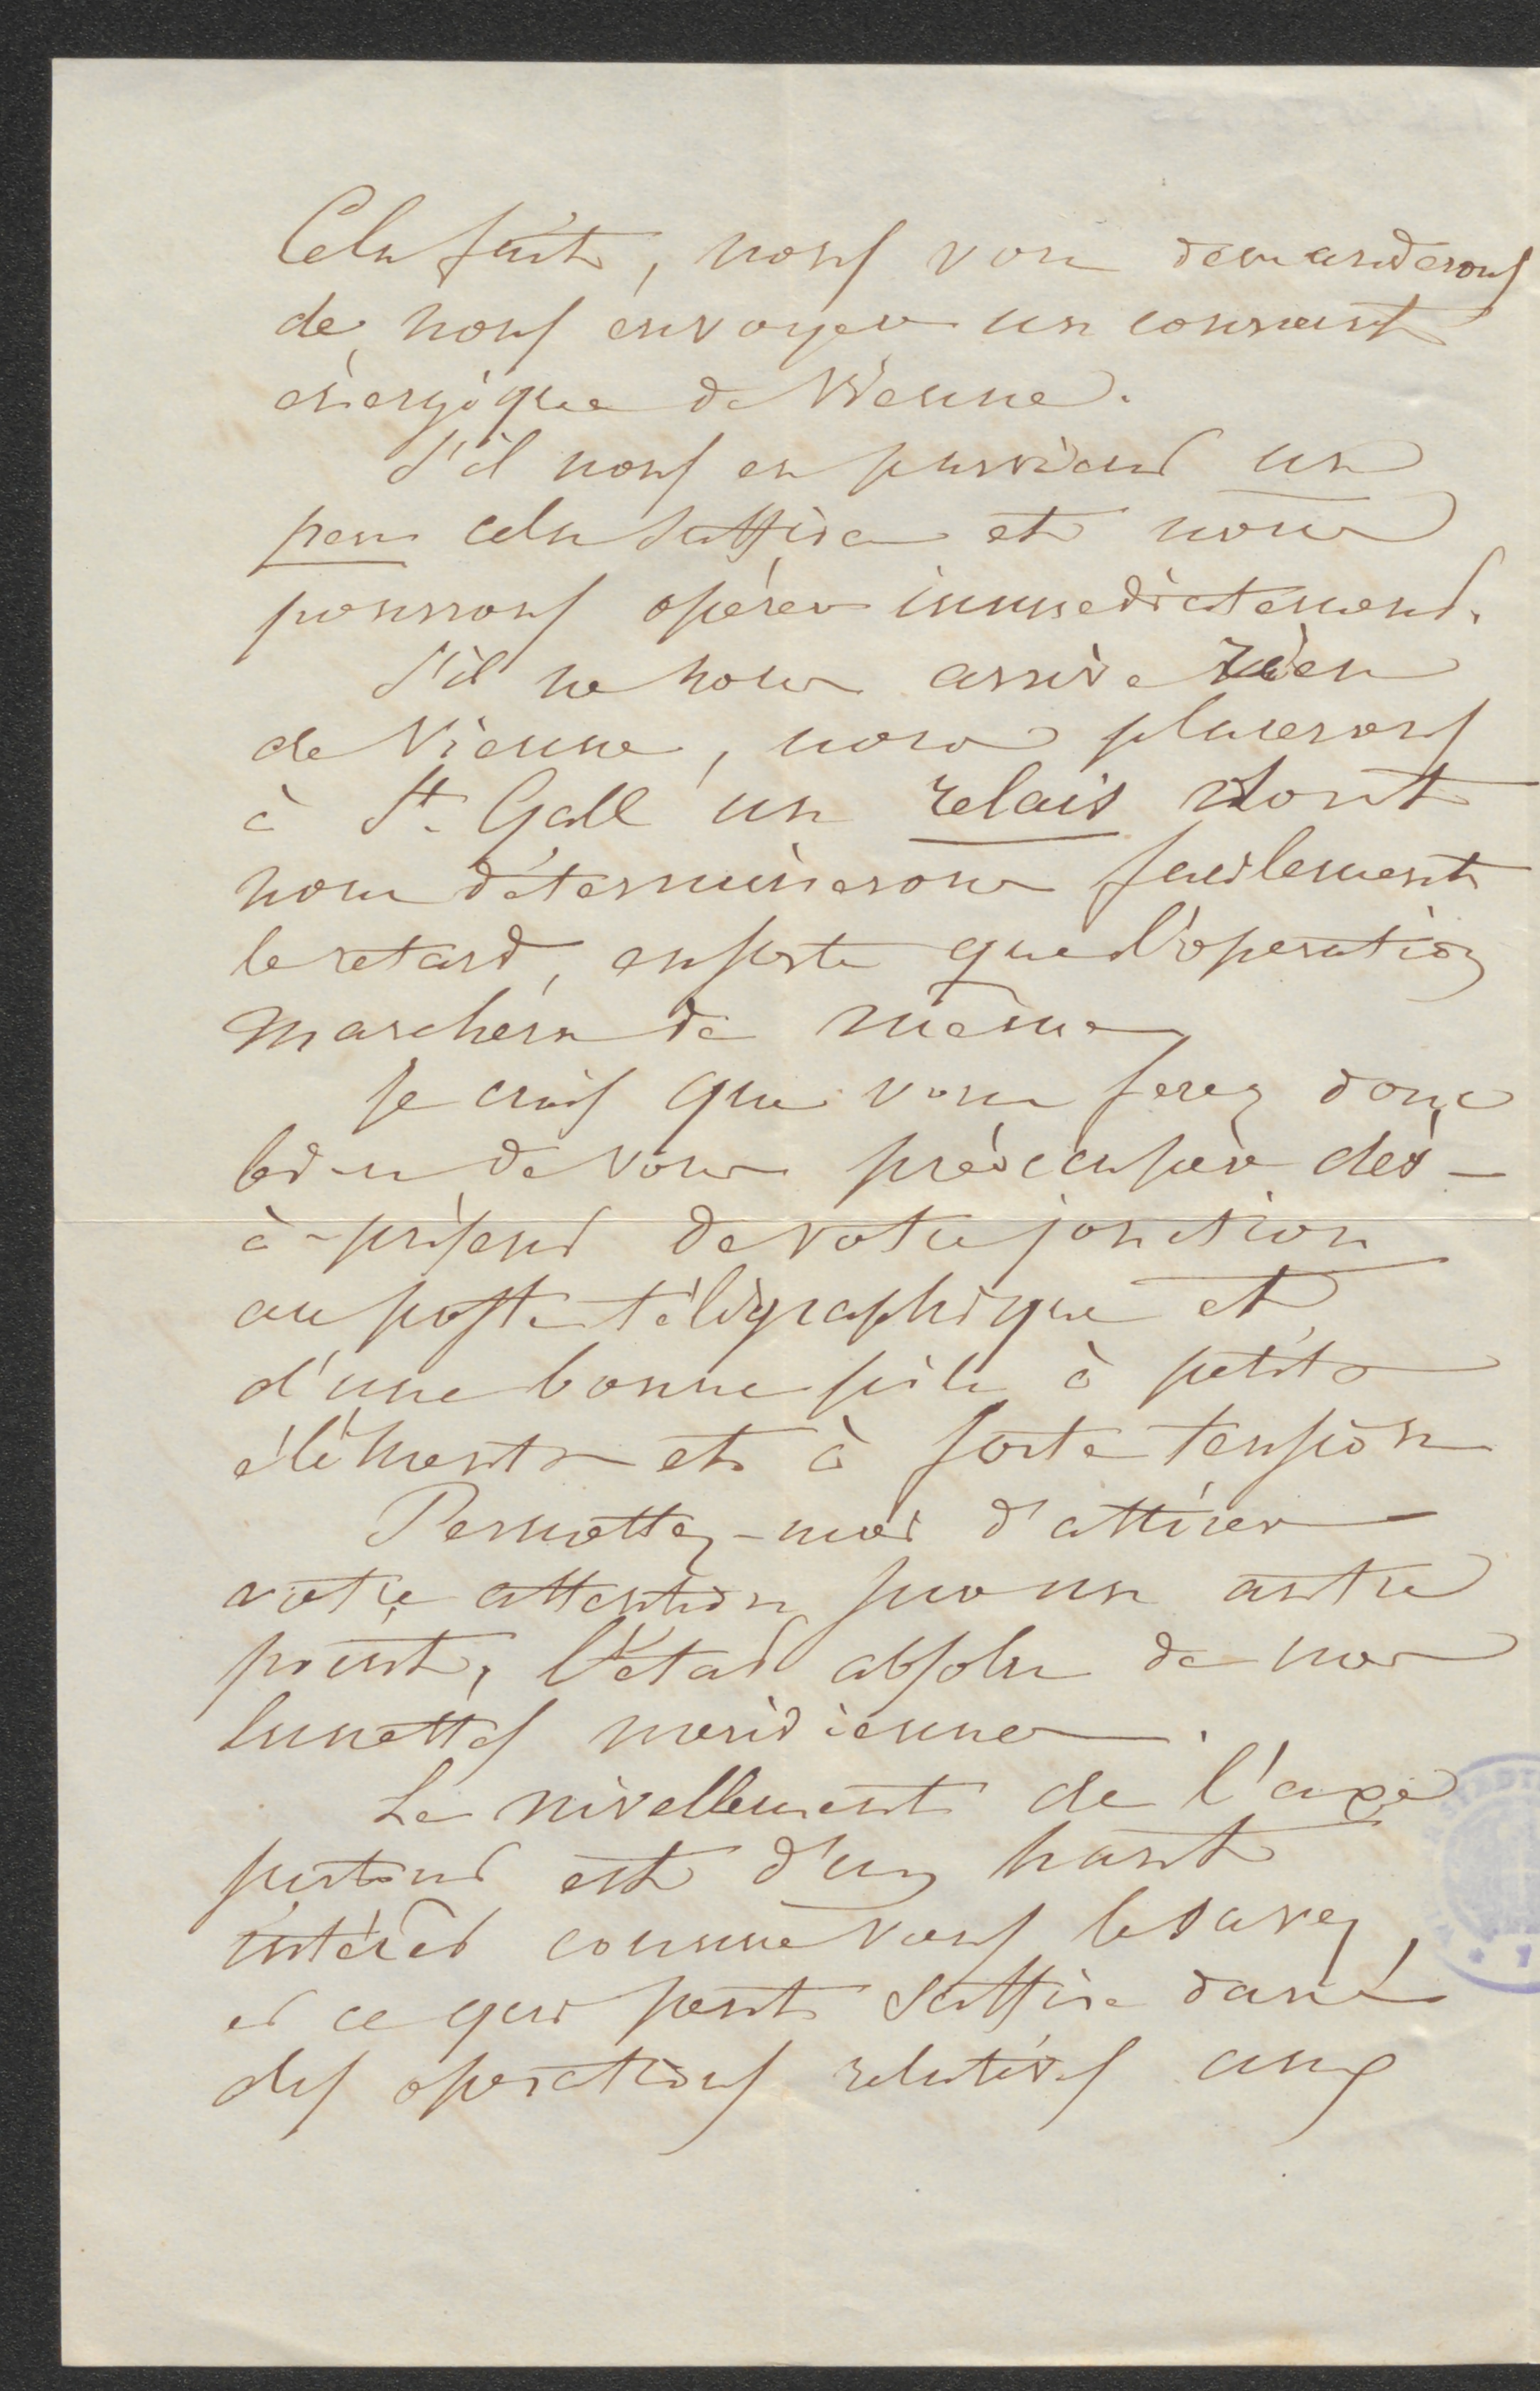 Cela fait, nous vous demanderons
de nous envoyer un courant
énergique de Vienne.
S'il nous en parvient un
peu cela suffira et nous
pourrons opérer immediatement.
S'il ne nous arrive rien
de Vienne, nous placerons
à St. Gall un relais dont
nous déterminerons facilement
le retard, ensorte que l'operation
marchera de même
Je crois que vous ferez donc
bien de vous préoccuper dès-
à-présent de votre jonction
au poste télégraphique et
d'une bonne pile à petits
éléments et à forte tension
Permettez-moi d'attirer
votre attention sur un autre
point, l'état absolu de nos
lunettes meridiennes.
Le nivellement de l'axe
surtout est d'un haut
intérêt comme vous le savez,
et ce qui peut suffire dans
des operations relatives aux